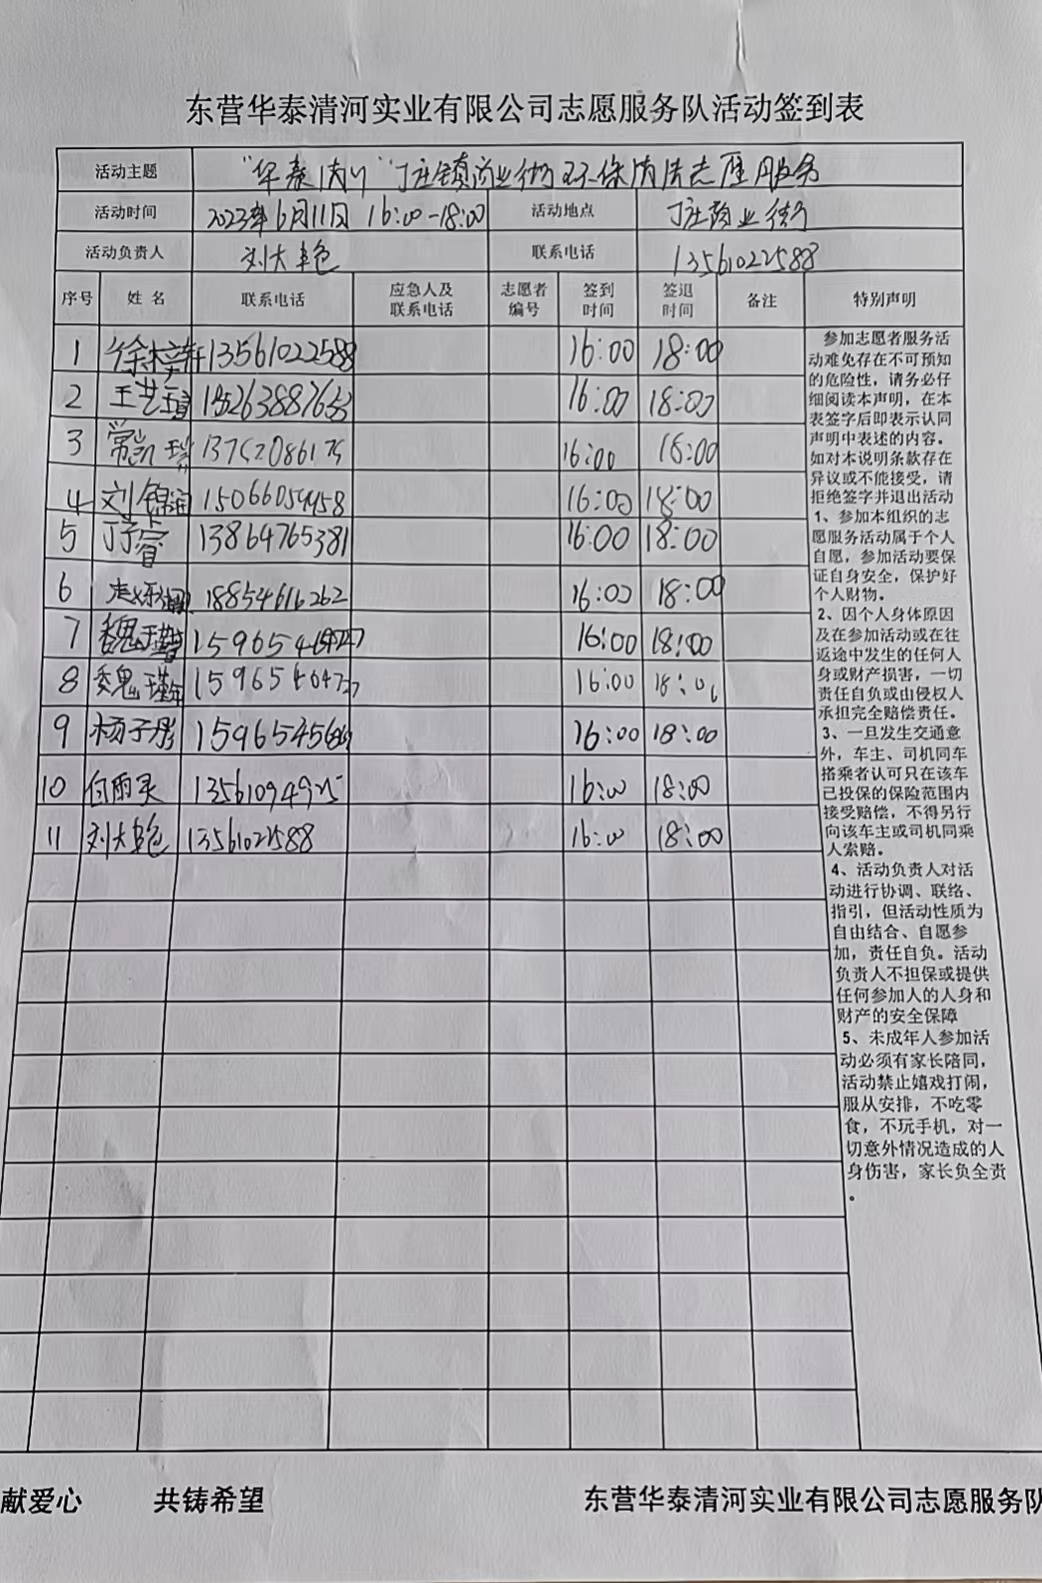 东营华泰清河实业有限公司志愿服务队活动签到表
活动主题 "华泰清川"丁庄镇商业街环保清洁志愿服务
活动时间 2023年6月11日 16:00-18:00 活动地点 丁庄商业街
活动负责人 刘大 联系电话 13561022588
序号 姓名 联系电话 应急人及联系电话 志愿者编号 签到时间 签退时间 备注 特别声明
1 徐梓轩 13561022588 16:00 18:00
2 王艺 16:00 18:00
3 常凯瑞 16:00 18:00
4 刘锦润 16:00 18:00
5 丁子睿 13864765381 16:00 18:00
6 18854616262 16:00 18:00
7 魏 16:00 18:00
8 魏 16:00
9 杨子彤 16:00 18:00
10 白雨灵 13561094925 16:00 18:00
11 刘大 13561022588 16:00 18:00
参加志愿者服务活
动难免存在不可预知
的危险性，请务必仔
细阅读本声明，在本
表签字后即表示认同
声明中表述的内容。
如对本说明条款存在
异议或不能接受，请
拒绝签字并退出活动
1、参加本组织的志
愿服务活动属于个人
自愿，参加活动要保
证自身安全，保护好
个人财物。
2、因个人身体原因
及在参加活动或在往
返途中发生的任何人
身或财产损害，一切
责任自负或由侵权人
承担完全赔偿责任。
3、一旦发生交通意
外，车主、司机同车
搭乘者认可只在该车
已投保的保险范围内
接受赔偿，不得另行
向该车主或司机同乘
人索赔。
4、活动负责人对活
动进行协调、联络、
指引，但活动性质为
自由结合、自愿参
加，责任自负。活动
负责人不担保或提供
任何参加人的人身和
财产的安全保障
5、未成年人参加活
动必须有家长陪同，
活动禁止嬉戏打闹，
服从安排，不吃零
食，不玩手机，对一
切意外情况造成的人
身伤害，家长负全责
。
献爱心 共铸希望 东营华泰清河实业有限公司志愿服务队